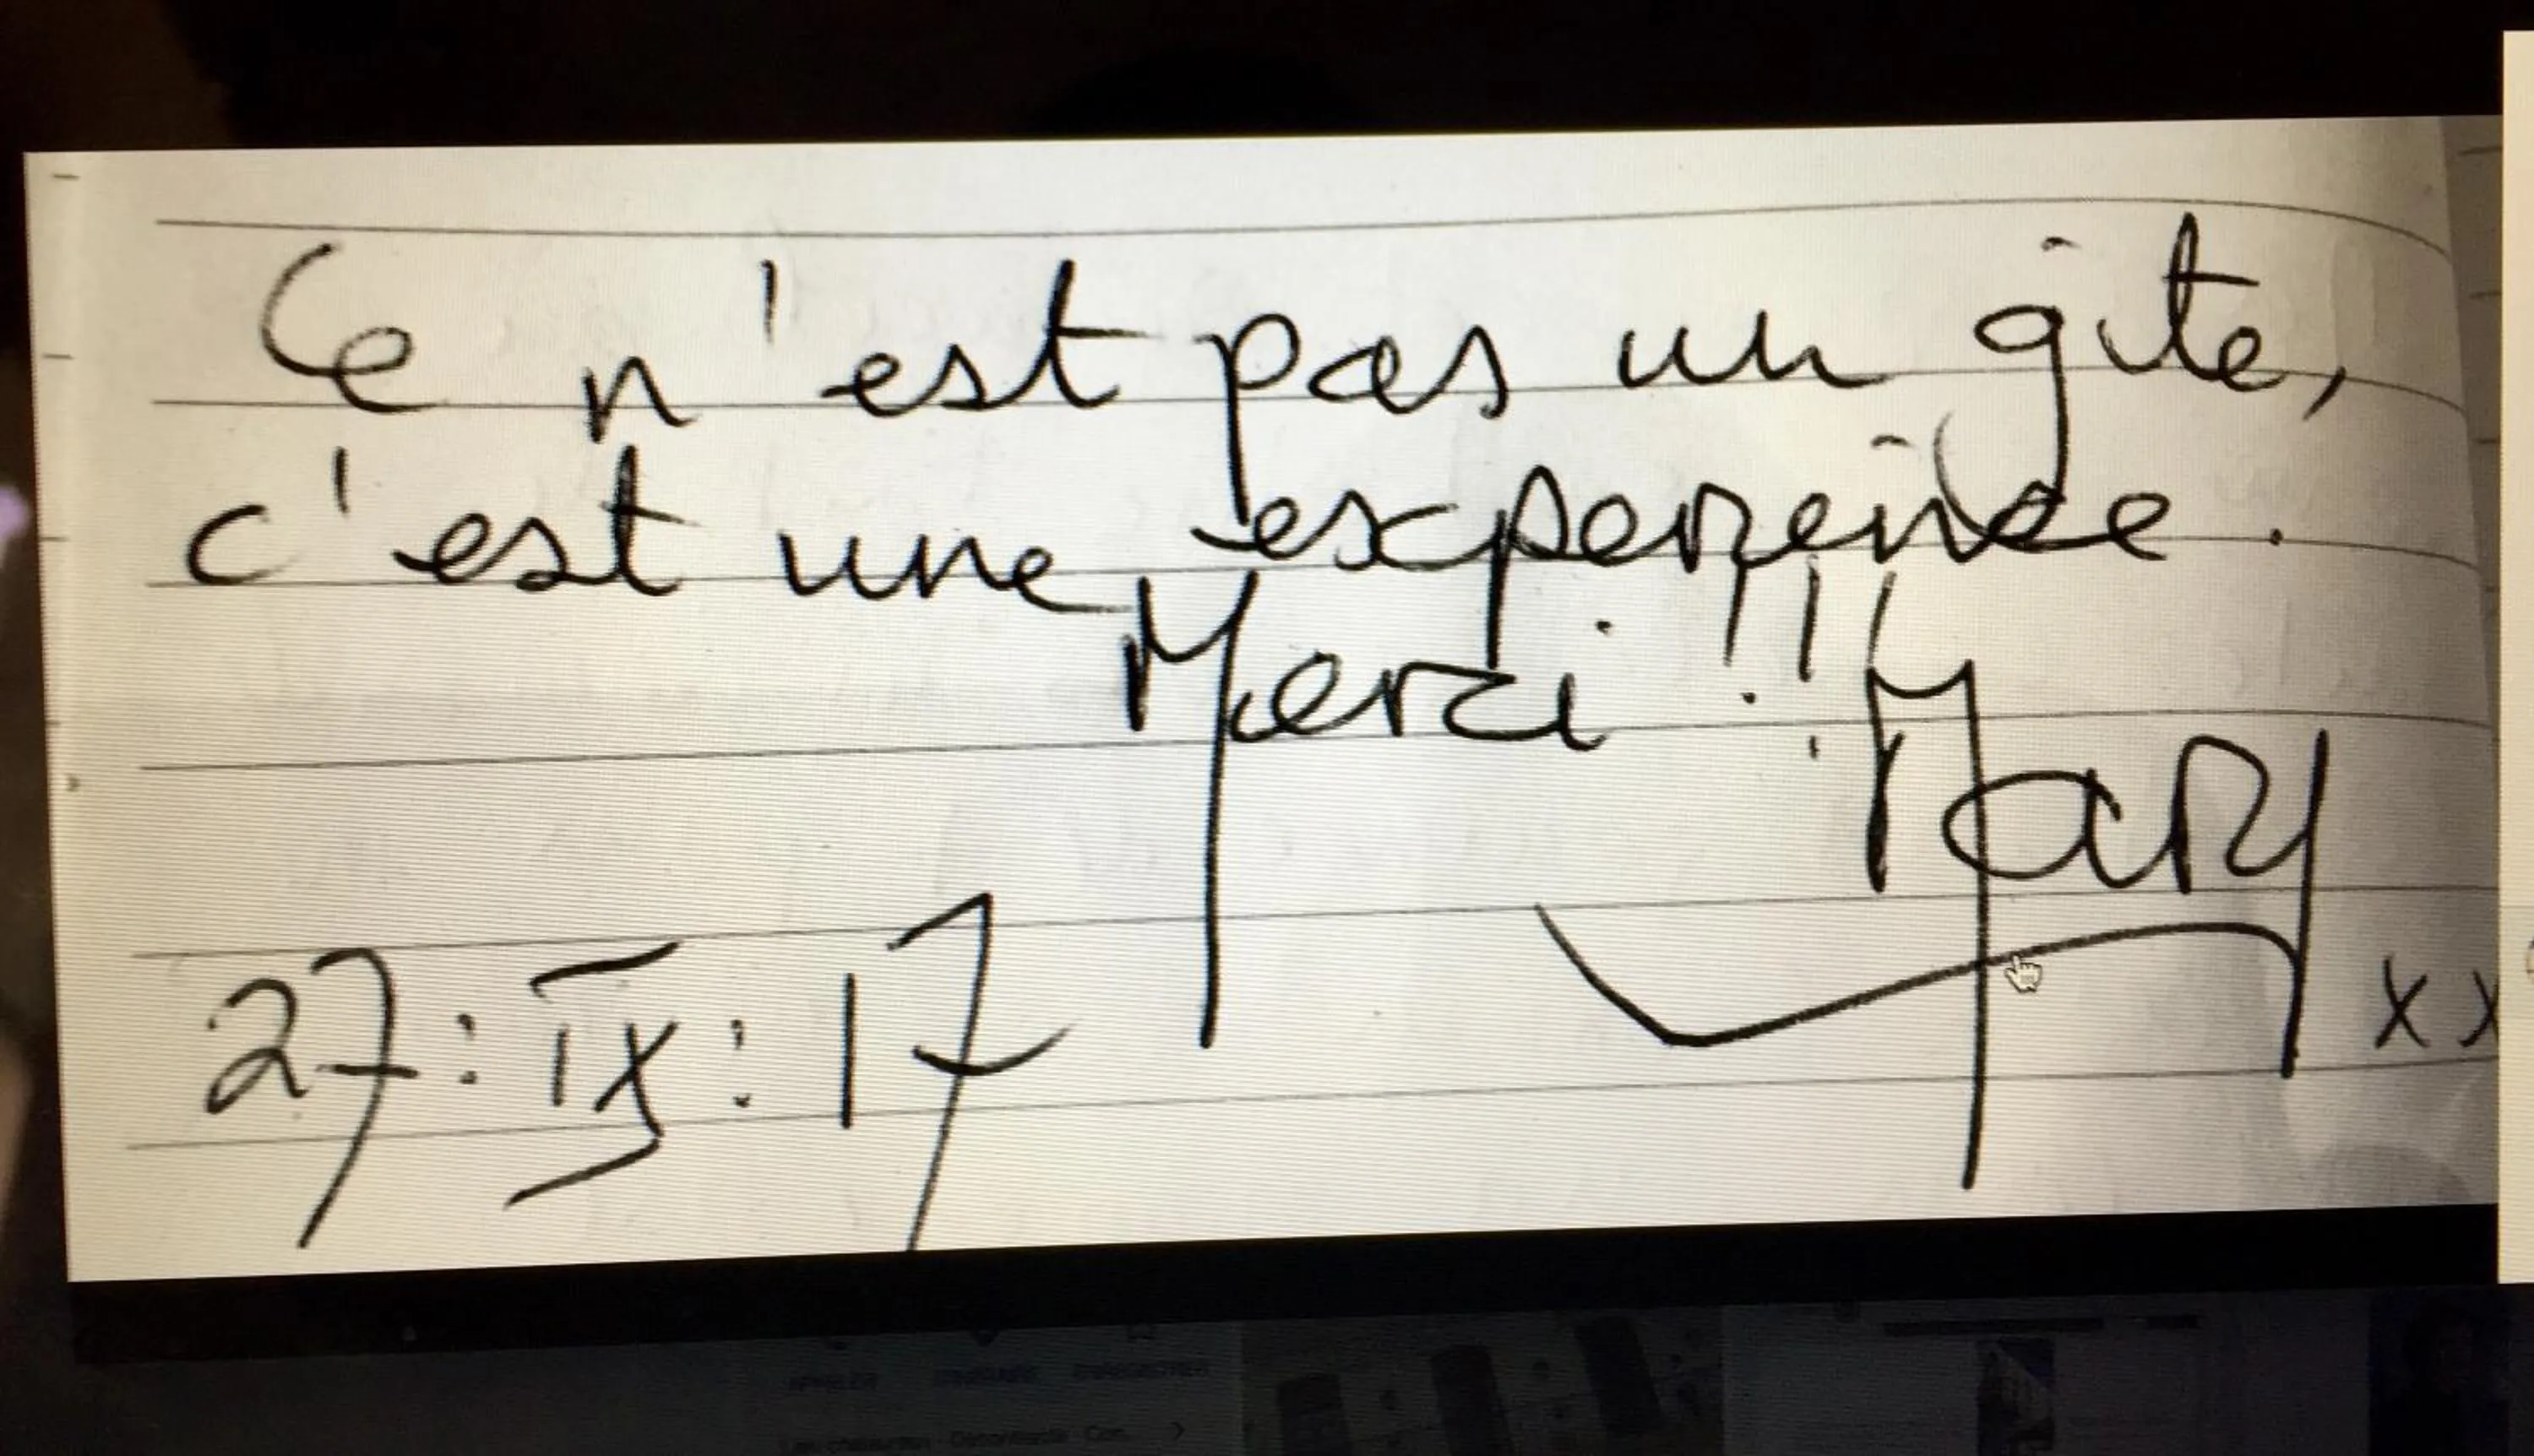 Ce n'est pas un gite,
c'est une experience.
Merci !!
Mary
27:IX:17 xx